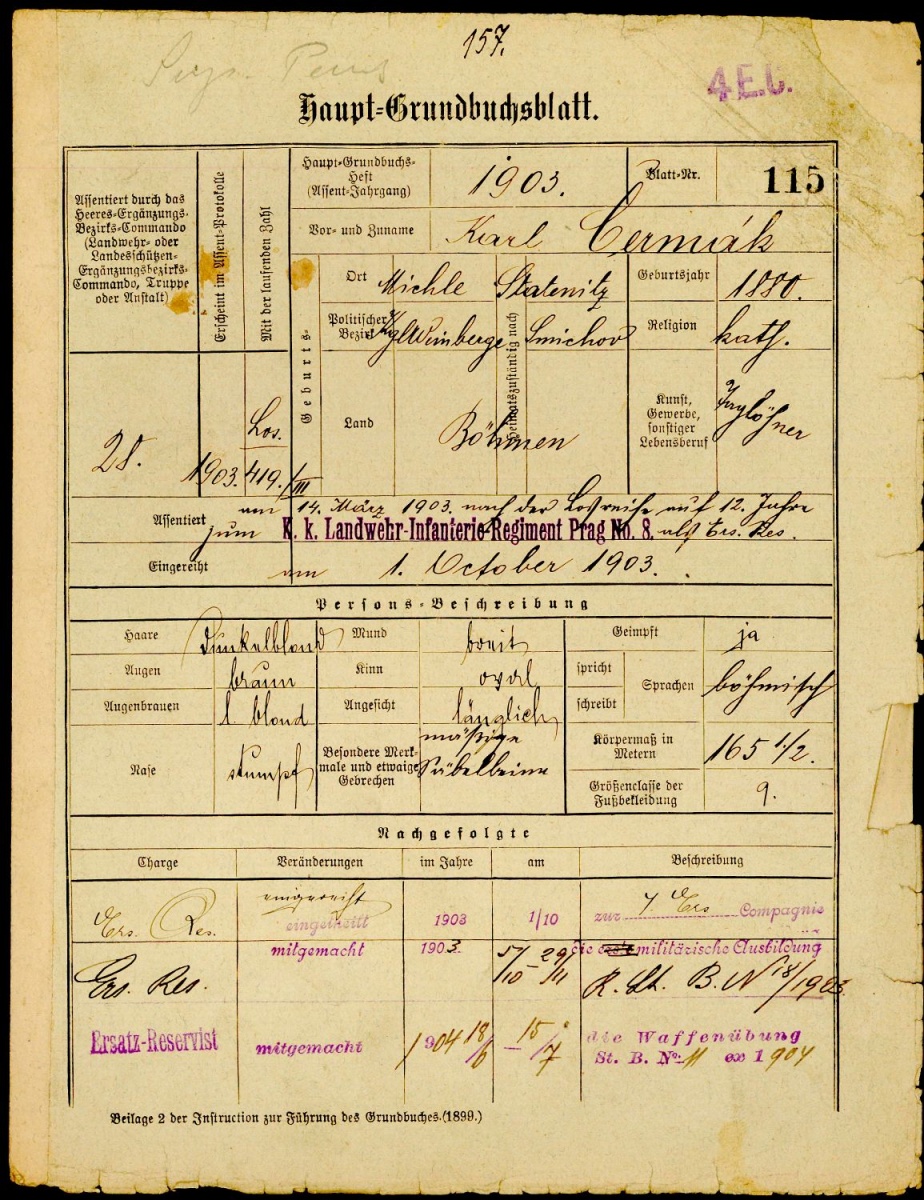 157.
4 E.C.
Haupt=Grundbuchsblatt.
Assentiert durch das
Heeres-Ergänzungs-
Bezirks-Commando
(Landwehr- oder
Landesschützen-
Ergänzungsbezirks-
Commando, Truppe
oder Anstalt)
Erscheint im Assent-Protokolle
Mit der laufenden Zahl
Haupt-Grundbuchs-
Heft
(Assent-Jahrgang)
1903.
Blatt-Nr.
115
Vor- und Zuname
Karl Cermák
Geburts-
Ort
Michle
Heimatszuständig nach
Statenitz
Geburtsjahr
1880.
Politischer
Bezirk
Kgl Weinberge
Smichov
Religion
kath.
Land
Böhmen
Kunst,
Gewerbe,
sonstiger
Lebensberuf
Taglöhner
28.
1903.
Los.
419./III
Assentiert
am 14. März 1903. nach der Losreihe auf 12. Jahre
zum K. k. Landwehr-Infanterie-Regiment Prag No. 8. als Ers. Res.
Eingereiht
am 1. October 1903.
Persons-Beschreibung
Haare
Dunkelblond
Mund
breit
Geimpft
ja
Augen
braun
Kinn
oval
spricht
schreibt
Sprachen
böhmisch
Augenbrauen
l. blond
Angesicht
länglich
Nase
stumpf
Besondere Merk-
male und etwaige
Gebrechen
mäßige
Säbelbeine
Körpermaß in
Metern
165 1/2.
Größenclasse der
Fußbekleidung
9.
Nachgefolgte
Charge
Veränderungen
im Jahre
am
Beschreibung
eingereiht
Ers. Res.
eingetheilt
1903
1/10
zur 7 Ers Compagnie
mitgemacht
1903
5/10 – 29/11
die militärische Ausbildung
Ers. Res.
St. B. N 18/1903
Ersatz-Reservist
mitgemacht
1904
18/6 – 15/7
die Waffenübung
St. B. No. 11 ex 1904
Beilage 2 der Instruction zur Führung des Grundbuches. (1899.)